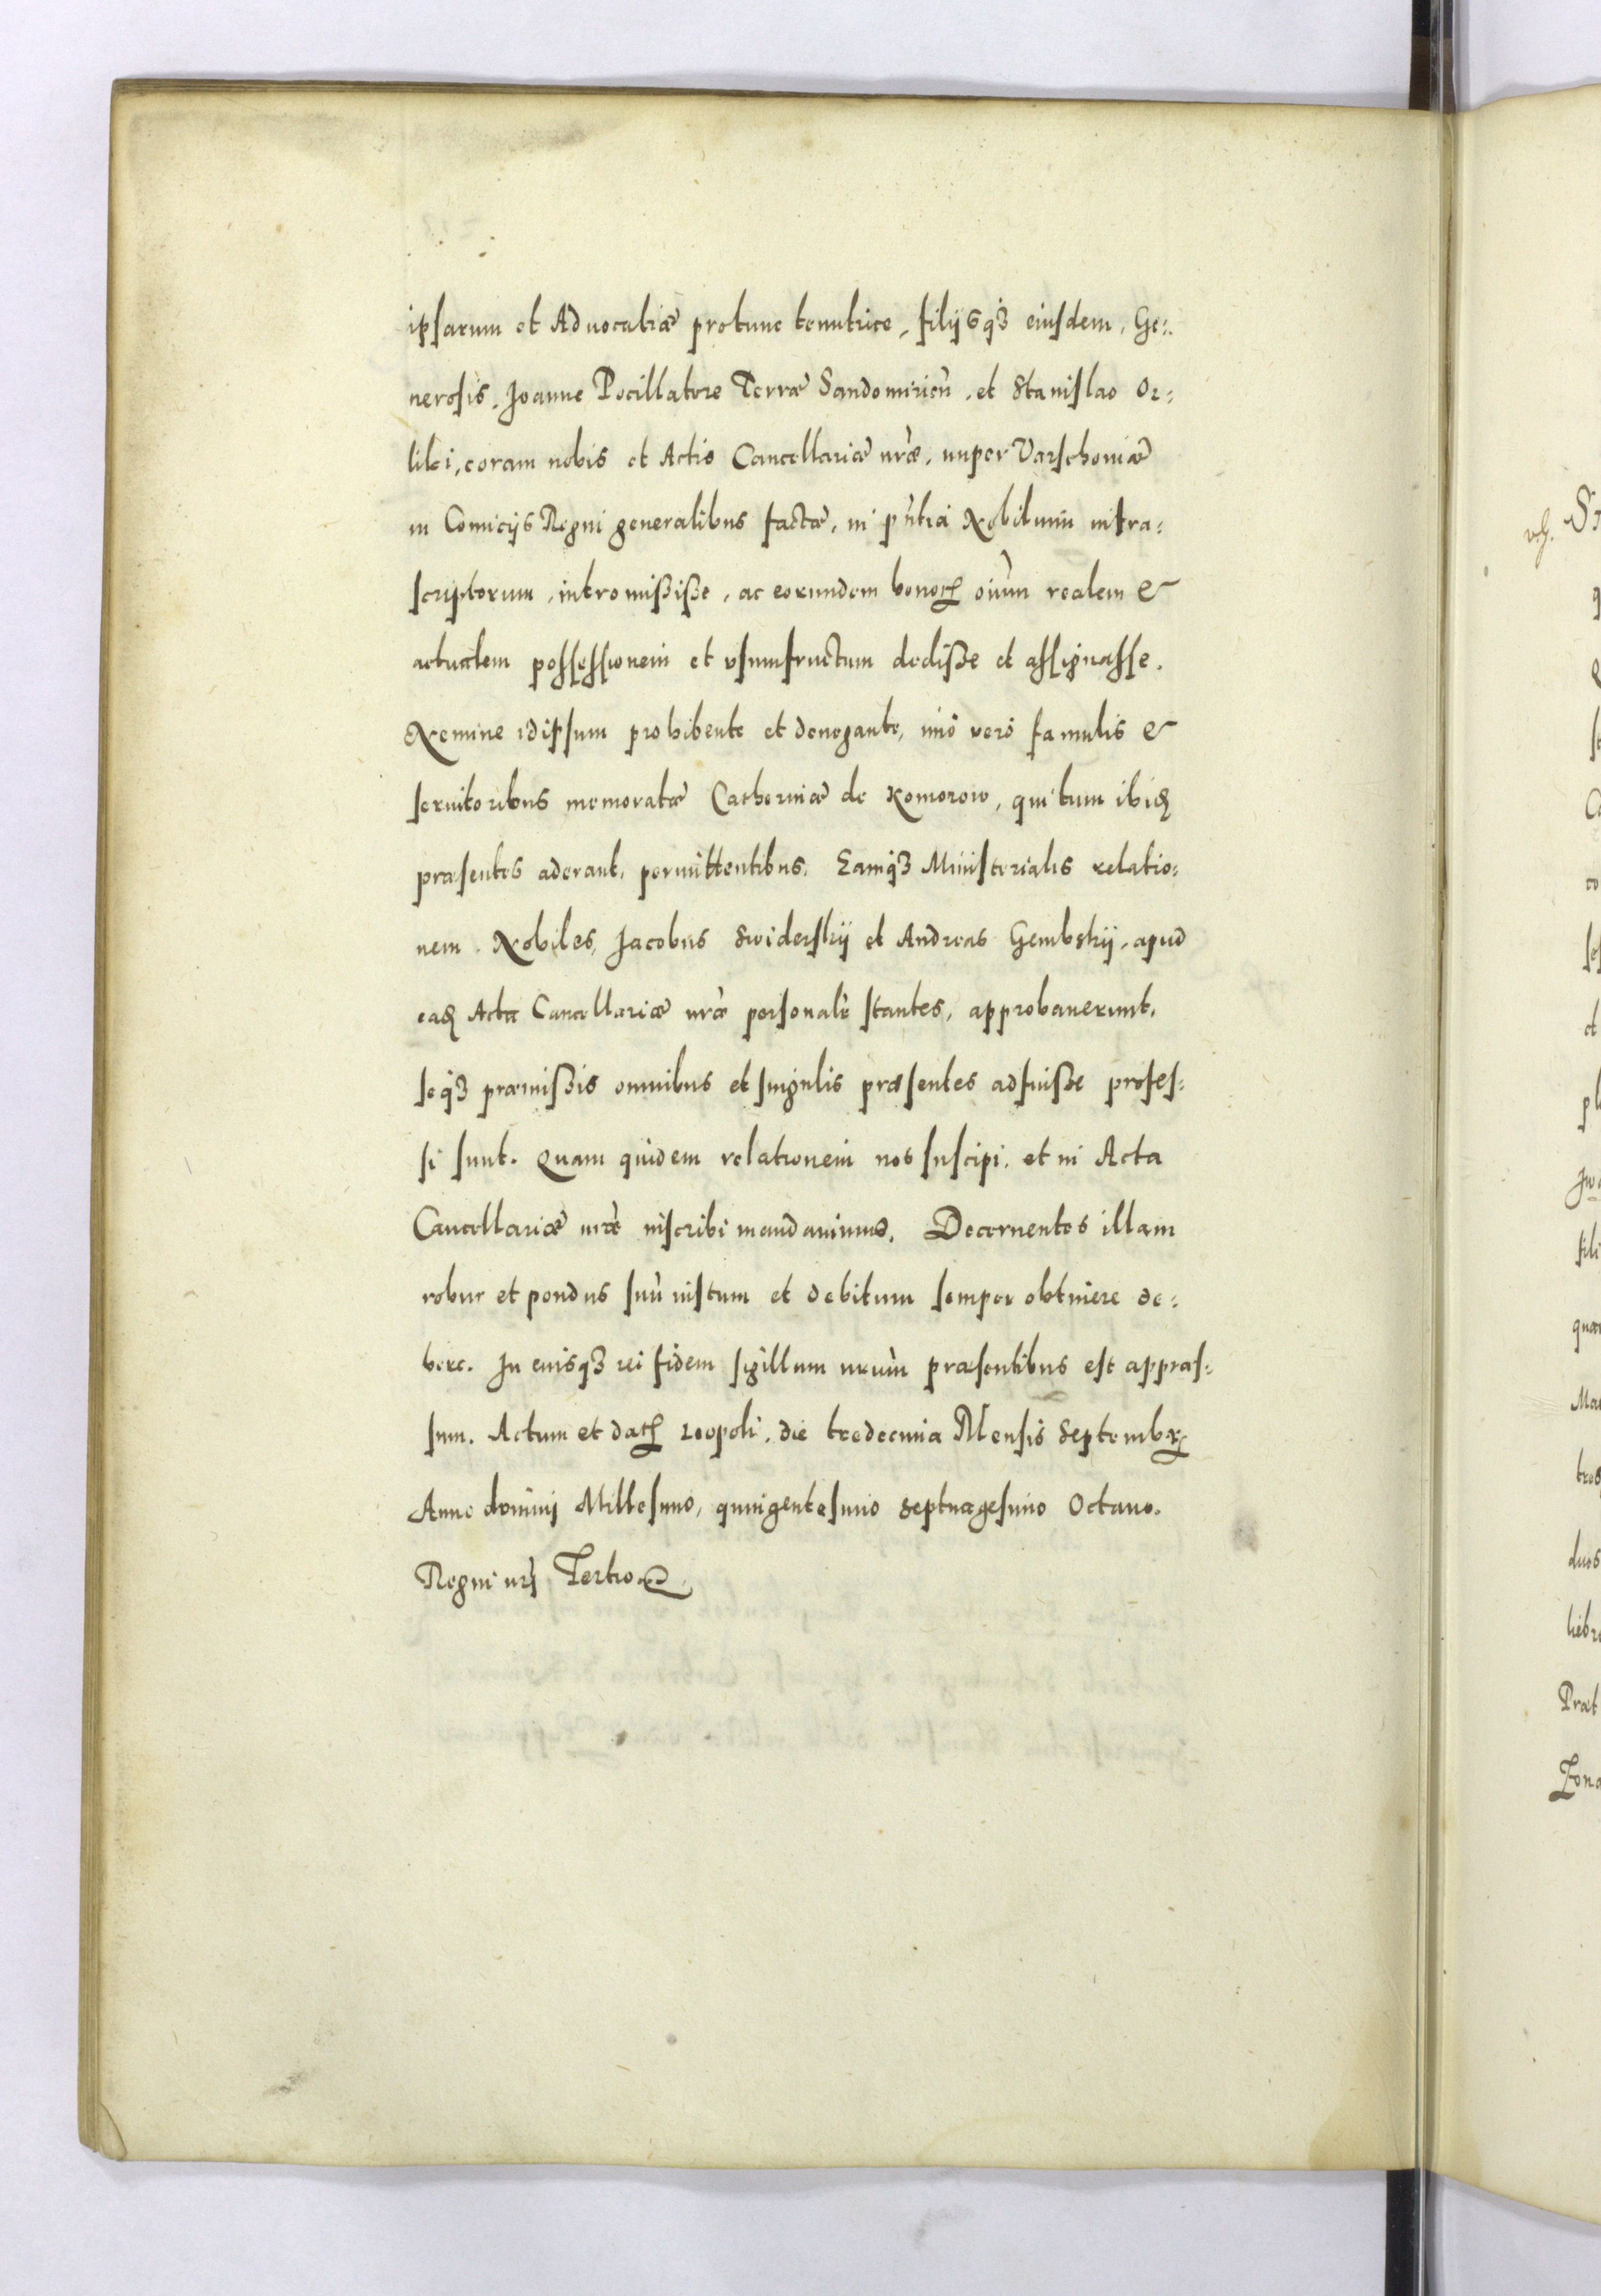 ipsarum et Aduocatiæ protunc tenutrice, filijsqȝ eiusdem, Ge⹀
nerosis, Joanne Pocillatore Terræ Sandomirieñ. et Stanislao Or⹀
liki, coram nobis et Actis Cancellariæ nræ, nuper Varschouiæ
in Comicijs Regni generalibus factæ, in pñtia Nobilium infra⹀
scriptorum, intromißiße, ac eorundem bonoꝝ oium realem &
actualem possessionem et vsumfructum dediße et assignasse.
Nemine idipsum prohibente et denegante, imo vero famulis &
seruitoribus memoratæ Catherinæ de Komorow, qui tum ibidꝫ
præsentes aderant, permittentibus. Eamqȝ Ministerialis relatio⹀
nem. Nobiles, Jacobus Swiderskij et Andreas Gembskij, apud
eadꝫ Acta Cancellariæ nræ personalr stantes, approbauerunt,
seqȝ præmißis omnibus et singulis præsentes adfuiße profes⹀
si sunt. Quam quidem relationem nos suscipi, et in Acta
Cancellariæ nræ inscribi mandauimus. Decernentes illam
robur et pondus suu iustum et debitum semper obtinere de⹀
bere. In cuiusqȝ rei fidem sigillum nrum præsentibus est appræs⹀
sum. Actum et datꝝ Leopoli, die tredecima Mensis Septembrꝭ
Anno domini Millesimo, quingentesimo septuagesimo Octauo.
Regni nrj Tertio